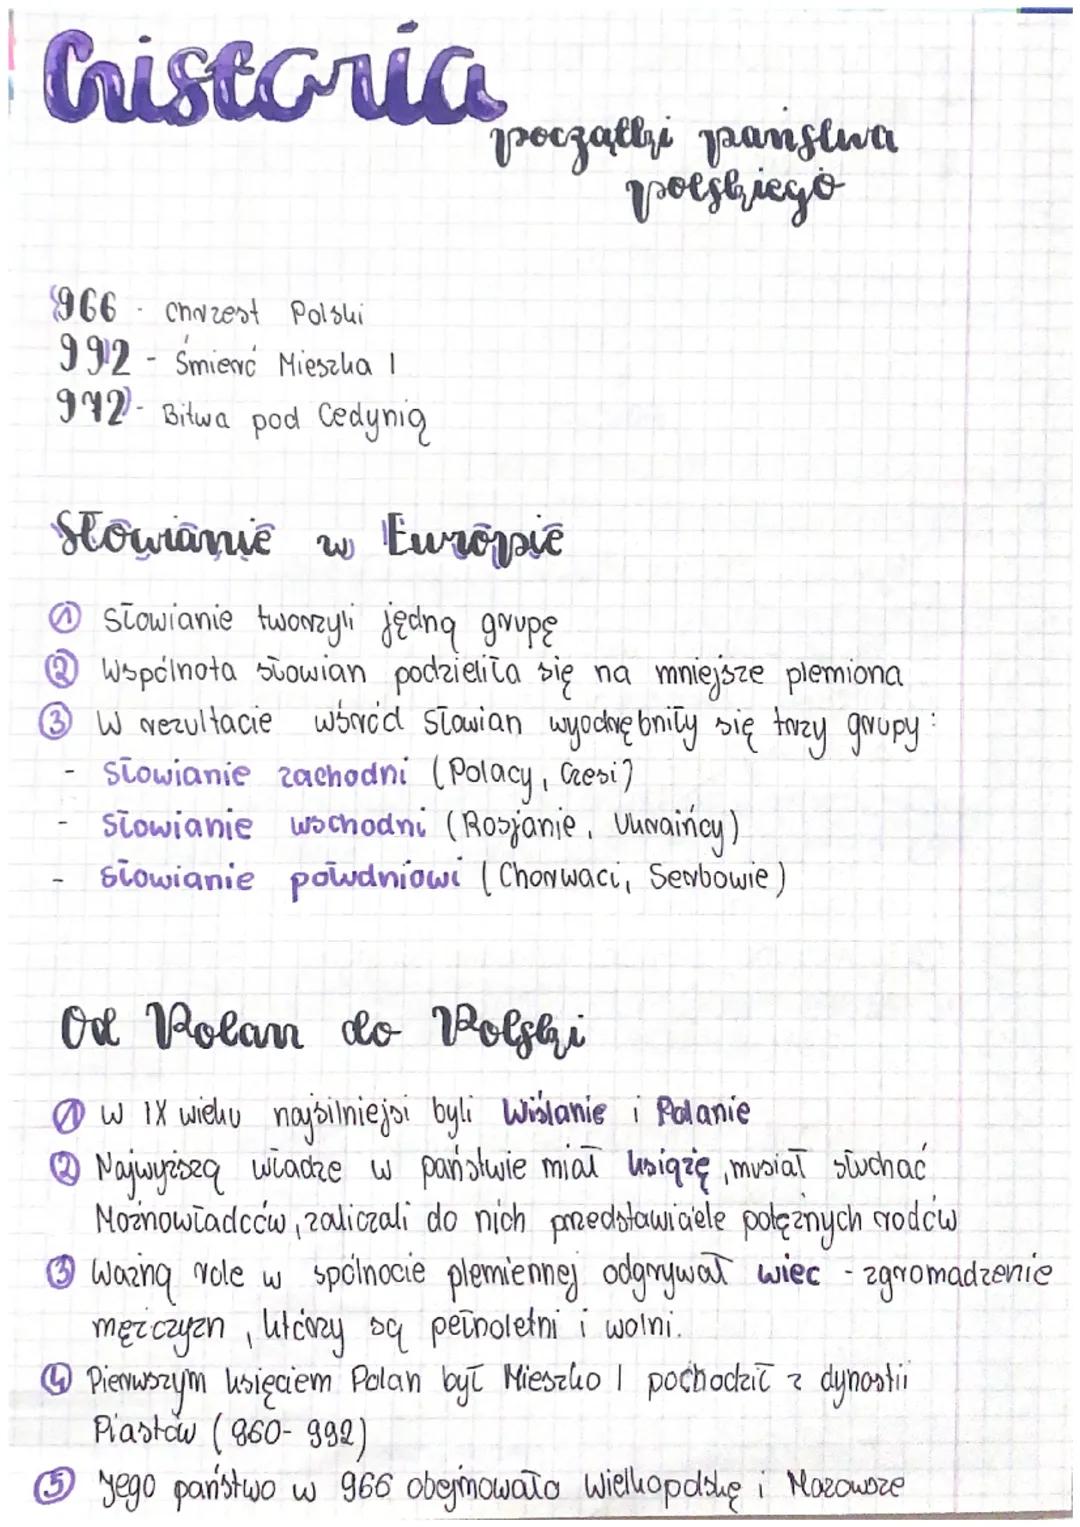 historia
początki państwa
polskiego
966 - chrzest Polski
992 - Śmierć Mieszka I
972 - Bitwa pod Cedynią
Słowianie w Europie
① Słowianie tworzyli jędną grupę
② Wspólnota słowian podzieliła się na mniejsze plemiona
③ W rezultacie wśród Słowian wyodrębniły się trzy grupy:
- Słowianie zachodni (Polacy, Czesi)
- Słowianie wschodni (Rosjanie, Ukraińcy)
- Słowianie południowi (Chorwaci, Serbowie)
Od Polan do Polski
① W IX wieku najsilniejsi byli Wiślanie i Polanie
② Najwyższą władzę w państwie miał książę, musiał słuchać
Możnowładców, zaliczali do nich przedstawiciele potężnych rodów
③ Ważną role w spólnocie plemiennej odgrywał wiec - zgromadzenie
mężczyzn, którzy są pełnoletni i wolni.
④ Pierwszym księciem Polan był Mieszko I pochodził z dynastii
Piastów (960-992)
⑤ Jego państwo w 966 obejmowało Wielkopolskę i Mazowsze